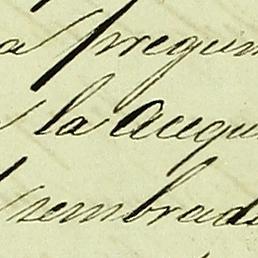 a pregun
la acequ
sembrad